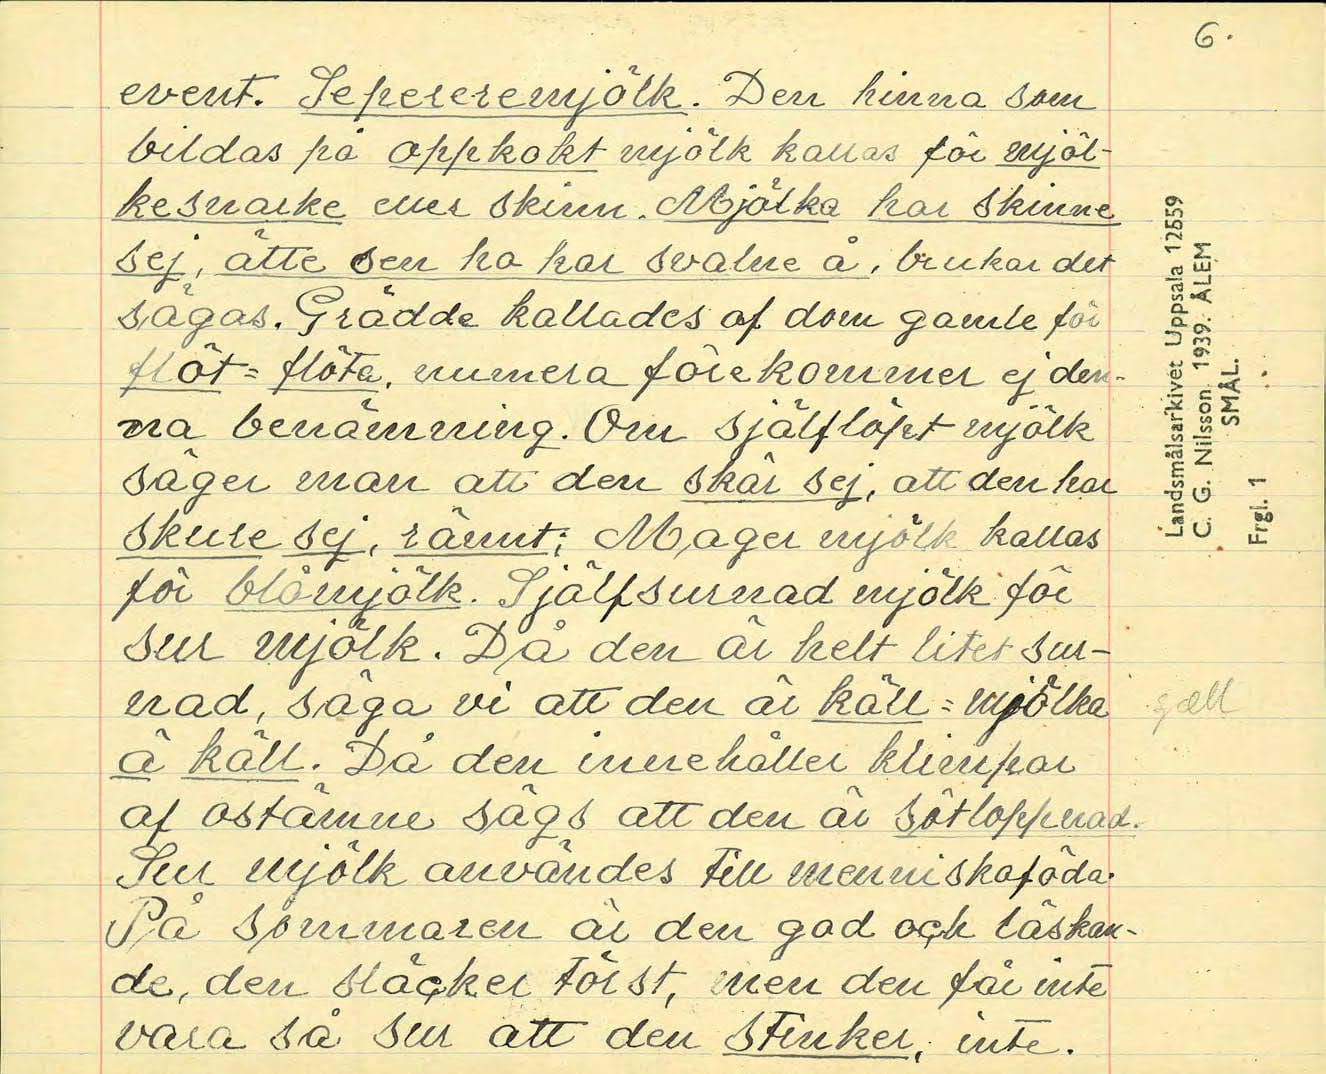 6.
event. Sepereremjölk. Den hinna som
bildas på oppkokt mjölk kallas för mjöl-
kesnarke eller skinn. Mjölka har skinne
sej, ätte sen ho har svalne å, brukar det
sägas. Grädde kallades af dom gamle för
flöt = flöta, numera förekommer ej den-
na benämning. Om själflöpt mjölk
säger man att den skär sej, att den har
skure sej, rännt; Mager mjölk kallas
för blåmjölk. Sjelfsurnad mjölk för
sur mjölk. Då den är helt litet sur-
nad, säga vi att den är käll = mjölka
ä käll. Då den innehåller klimpar
af ostämne sägs att den är sötloppnad.
Sur mjölk användes till menniskoföda.
På sommaren är den god och läskan-
de, den släcker törst, men den får inte
vara så sur att den stinker, inte.
gäll
Landsmålsarkivet Uppsala 12559
C. G. Nilsson 1939. ÅLEM
SMÅL.
Frgl. 1